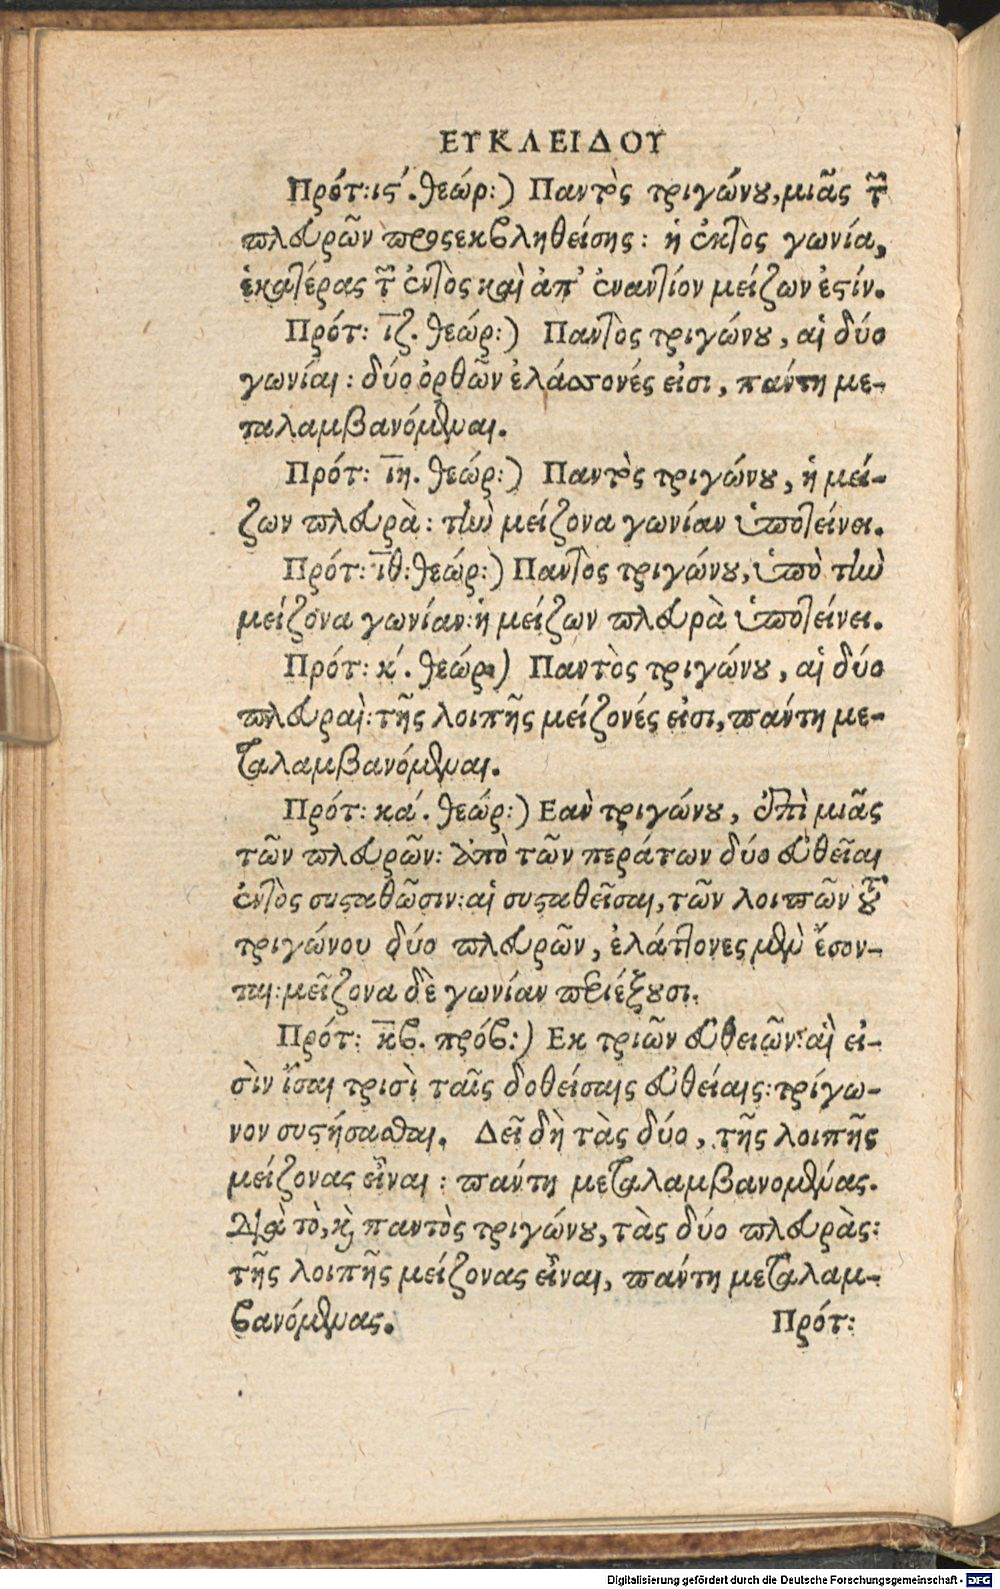 ΕΥΚΛΕΙΔΟΥ
Πρότ: ις΄. θεώρ:) Παντὸς τριγώνου, μιᾶς τ῀
πλευρῶν προσεκβληθείσης: ἡ ἐκτὸς γωνία,
ἑκατέρας τ῀ ἐντὸς καὶ ἀπ' ἐναντίον μείζων ἐστίν.
Πρότ: ιζ. θεώρ:) Παντὸς τριγώνου, αἱ δύο
γωνίαι: δύο ὀρθῶν ἐλάσσονές εἰσι, πάντη με-
ταλαμβανόμεναι.
Πρότ: ιη. θεώρ:) Παντὸς τριγώνου, ἡ μεί-
ζων πλευρὰ: τὴν μείζονα γωνίαν ὑποτείνει.
Πρότ: ιθ: θεώρ:) Παντὸς τριγώνου, ὑπὸ τὴν
μείζονα γωνίαν: ἡ μείζων πλευρὰ ὑποτείνει.
Πρότ: κ΄. θεώρ:) Παντὸς τριγώνου, αἱ δύο
πλευραὶ: τῆς λοιπῆς μείζονές εἰσι, πάντη με-
ταλαμβανόμεναι.
Πρότ: κα΄. θεώρ:) Εαν τριγώνου, ἐπὶ μιᾶς
τῶν πλευρῶν: ἀπὸ τῶν περάτων δύο εὐθεῖαι
ἐντὸς συσταθῶσιν: αἱ συσταθεῖσαι, τῶν λοιπῶν τοῦ
τριγώνου δύο πλευρῶν, ἐλάττονες μὲν ἔσον-
ται: μεῖζονα δὲ γωνίαν περιέξουσι.
Πρότ: κβ. πρόβ:) Εκ τριῶν εὐθειῶν: αἳ εἰ-
σὶν ἴσαι τρισὶ ταῖς δοθείσαις εὐθείαις: τρίγω-
νον συστήσασθαι. Δεῖ δὴ τὰς δύο, τῆς λοιπῆς
μείζονας εἶναι: πάντη μεταλαμβανομένας.
Διὰ τὸ, καὶ παντὸς τριγώνου, τὰς δύο πλευρὰς:
τῆς λοιπῆς μείζονας εἶναι, πάντη μεταλαμ-
βανόμενας.
Πρότ:
Digitalisierung gefördert durch die Deutsche Forschungsgemeinschaft - DFG